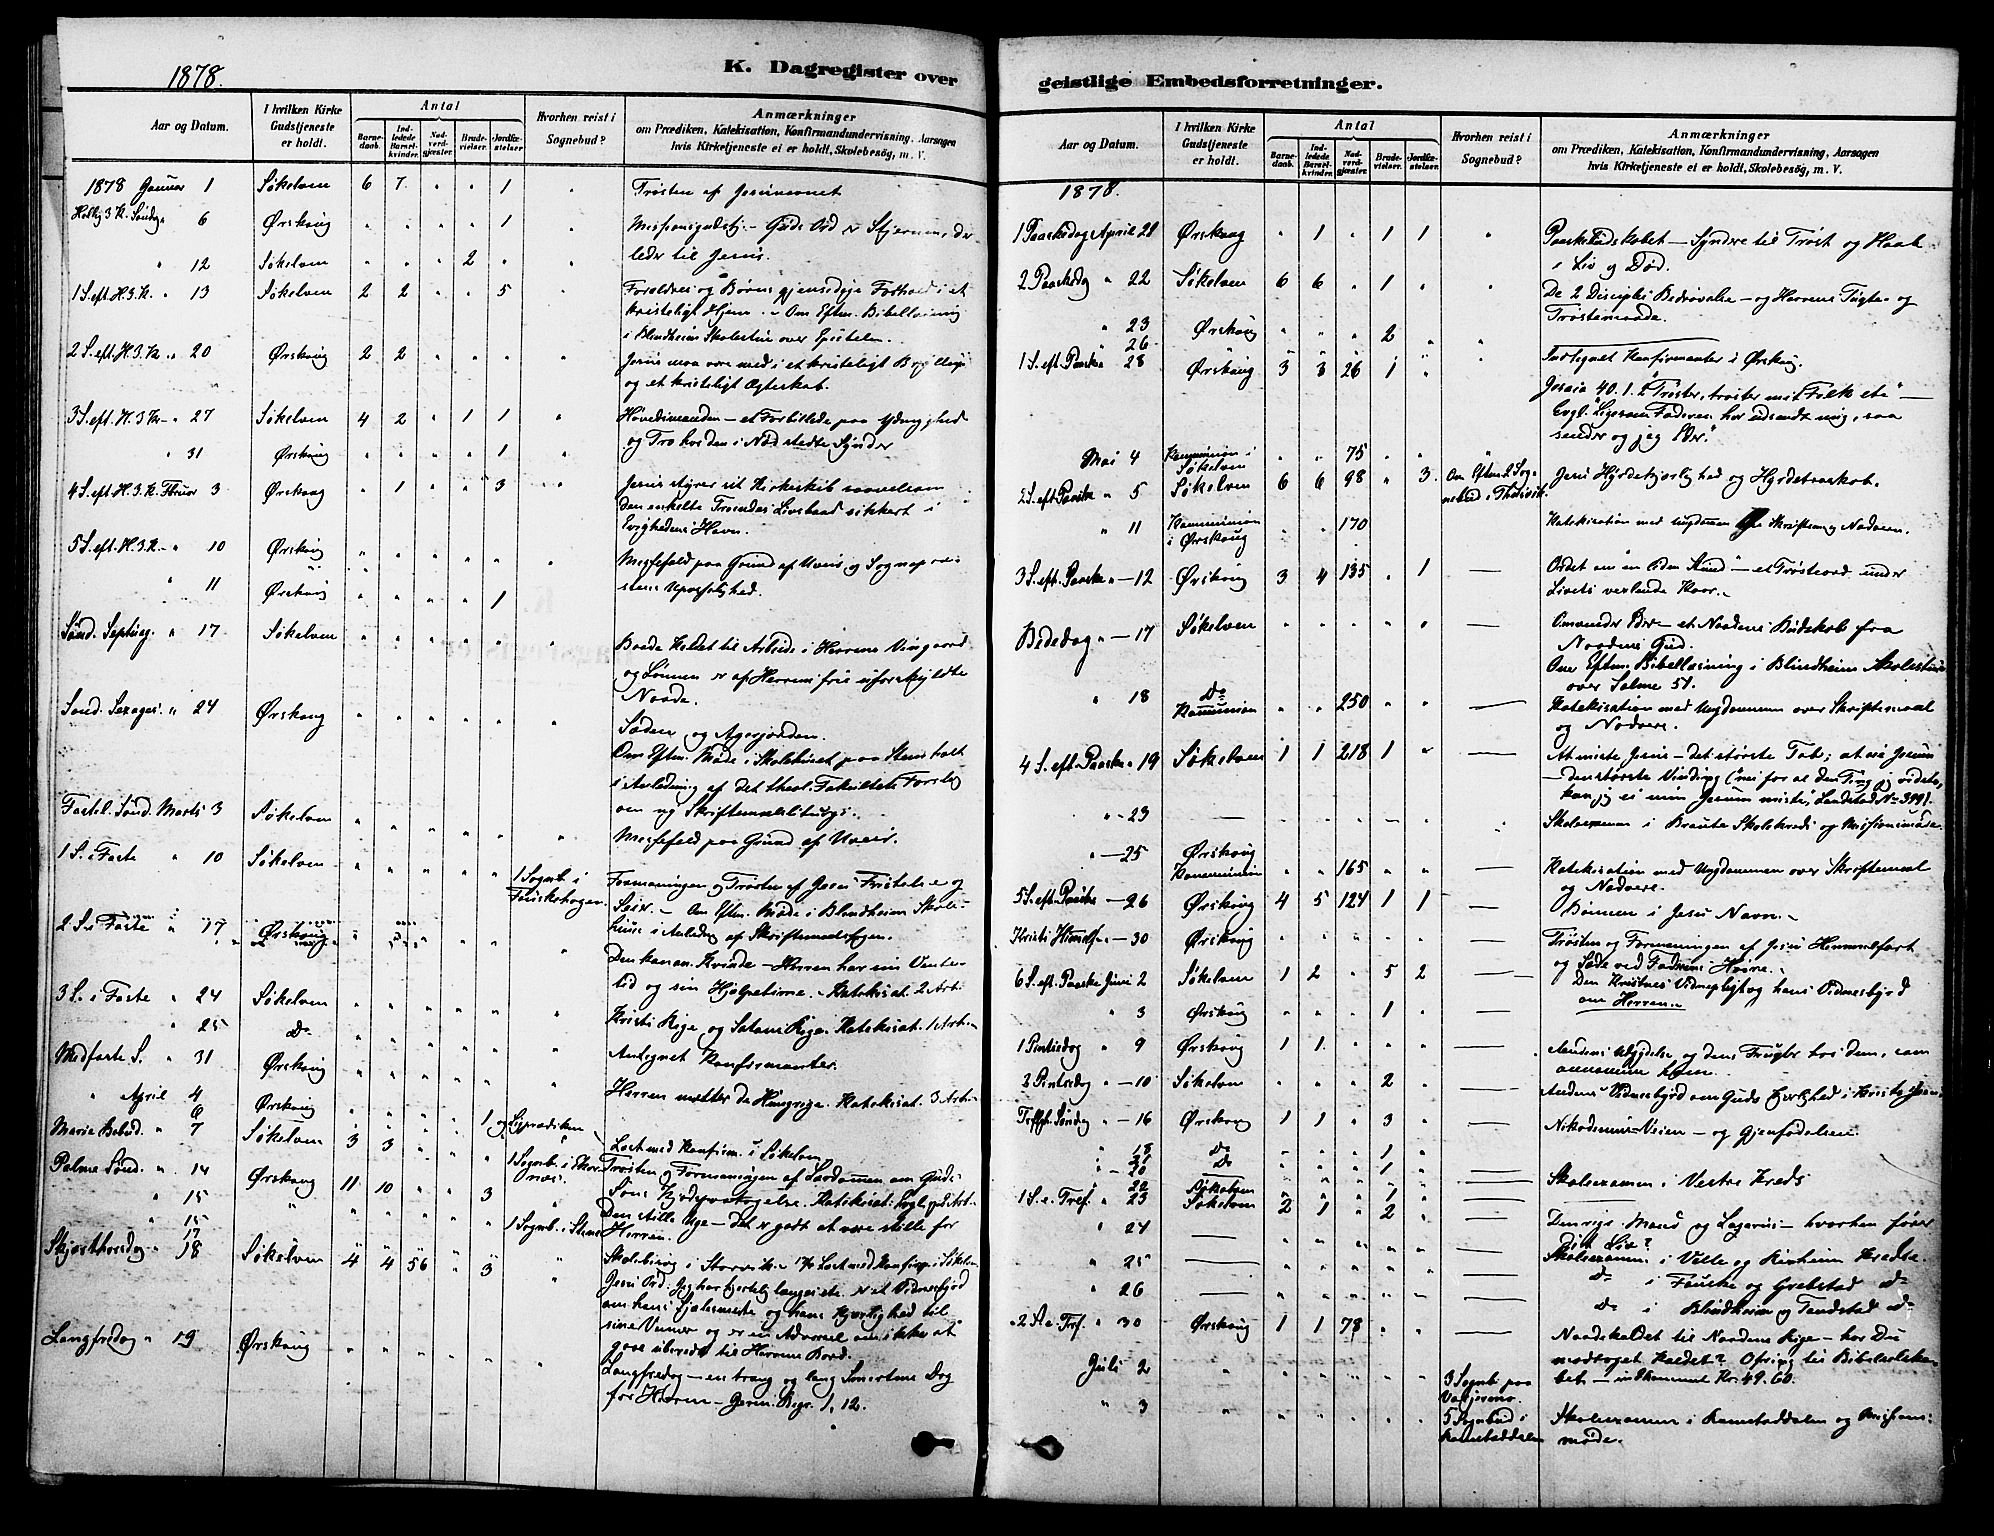 1878.
K. Dagregister over
geistlige Embedsforretninger.
Aar og Datum.
I hvilken Kirke Gudstjeneste er holdt.
Antal
Barnedaab.
Indledede Barselkvinder.
Nadverdgjæster.
Brudevielser.
Jordfæstelser.
Hvorhen reist i Sognebud?
Anmærkninger
om Prædiken, Katekisation, Konfirmandundervisning, Aarsagen
hvis Kirketjeneste ei er holdt, Skolebesøg, m. V.
1878 Januar 1 Søkelven 6 7 " " 1 " Trøsten af Jesunavnet
Hellig 3 K. Søndag 6 Ørskoug " " " " 1 " Missionsgudstj. - Guds Ord er Stjernen, der
" 12 Søkelven " " " 2 " " leder til Jesus.
1 S. eft. H. 3. K. " 13 Søkelven 2 2 " " 5 " Forældres og Børns gjensidige Forhold i et
kristeligt Hjem. - Om Eftm. Bibellæsning
i Blindheim Skolestue over Epistelen.
2 S. eft. H. 3. K. " 20 Ørskoug 2 2 " " " " Jesus maa være med i et kristeligt Bryllup
og et kristeligt Ægteskab.
3 S. eft. H. 3 K. " 27 Søkelven 4 2 " 1 1 " Høvedsmanden - et Forbillede paa Ydmyghed
" 31 Ørskoug " " " " 1 " og Tro hos den i Nød stedte Synder
4 S. eft. H. 3. K. Februar 3 Ørskoug " 1 " " 3 " Jesus styrer sit Kirkeskib saavelsom
den enkelte Troendes Livsbaad sikkert i
Evighedens Havn.
5 S. eft. H. 3. K. " 10 Ørskoug " " " " " " Messefald paa Grund af Uveir og Sognepræ-
" 11 Ørskoug " " " " 1 stens Upasselighed.
Sønd. Septuag. " 17 Søkelven " " " " " " Baade Kaldet til Arbeide i Herrens Vingaard
og Lønnen er af Herrens frie uforskyldte
Naade.
Sønd. Sexages. " 24 Ørskoug " " " " " " Sæden og Agerjorden.
Om Eftm. Møde i Skolehuset paa Stenstoft
i Anledning af det theol. Fakultets Forslag
om ny Skriftemaalsliturgi.
Fastel. Sønd. Marts 3 Søkelven " " " " " " Messefald paa Grund af Uveir.
1 S. i Faste " 10 Søkelven " " " " " 1 Sognb. i Formaningen og Trøsten af Jesu Fristelse og
Seier. - Om Eftm. Møde i Blindheim Skole-
huse i Anledng af Skriftemaalssagen.
2 S. i Faste " 17 Ørskoug " " " " " " Den kanan. Kvinde - Herren har sin Vente-
tid og sin Hjælpetime. - Katekisat. 2 Arti
3 S. i Faste " 24 Søkelven " " " " " " Kristi Rige og Satans Rige. Katekisat. 1 Arti
" 25 Do " " " " " " Antegnet Konfirmanter.
Midfaste S. " 31 Ørskoug " " " " " " Herren mætter de Hungrige. Katekisat. 3 Arti
" April 4 Ørskoug
6
Maria Bebud. " 7 Søkelven 3 3 " " " Læst med Konfirm. i Søkelven
Palme Sønd. " 14 Ørskoug 11 10 " " 3 Trøsten og Formaningen af Lærdommen om Guds
" 15 " " " " " " Søns
" 15 Den stille Uge - det er godt at være stille for
17 Herren.
Skjærthorsdag " 18 Søkelven 4 4 56 " 3 " Jesu Ord: Jeg har hjertelig længes etc. er et Vidnesbyrd
om hans Sjælesmerte og hans Kjærlighed til
sine Venner og er en Advarsel om ikke at
gaae uberedt til Herrens Bord.
Langfredag " 19 Ørskoug " " " " " " Langfredag - en trang og lang Smertens Dag
for Herren - Jerem. Begr. 1, 12.
Aar og Datum.
I hvilken Kirke Gudstjeneste er holdt.
Antal
Barnedaab.
Indledede Barselkvinder.
Nadverdgjæster.
Brudevielser.
Jordfæstelser.
Hvorhen reist i Sognebud?
Anmærkninger
om Prædiken, Katekisation, Konfirmandundervisning, Aarsagen
hvis Kirketjeneste ei er holdt, Skolebesøg, m. V.
1878.
1 Paaskedag April 21 Ørskoug " 1 " 1 1 " Paaskebudskabet - Syndere til Trøst og Haab
i Liv og Død.
2 Paaskedag " 22 Søkelven 6 6 " 1 " " De 2 Disciples Bedrøvelse - og Herrens Tugte- og
Trøstemaade.
" 23 Ørskoug " " " 2 " "
" 26 Indtegnet Konfirmanter i Ørskoug.
1 S. eft. Paaske " 28 Ørskoug 3 3 26 1 " Jesaia 40. 1. "Trøster, trøster mit Folk etc" -
Evgl. "Ligesom Faderen har udsendt mig, saa
sender og jeg Eder."
Mai 4 Kommunion i Søkelven " " 75 " " "
2 S. eft. Paaske " 5 Søkelven 6 6 98 " 3 Om Eftm. 2 Sognebud i Jesu Hyrdekjærlighed og Hyrdetroskab.
" 11 Kommunion i Ørskoug " " 170 Katekisation med Ungdommen over Skriftem. og Nadveren.
3 S. eft. Paaske " 12 Ørskoug 3 4 135 " 1 — Ordet om en liden Stund - et Trøsteord under
Livets vexlende Kaar.
Bededag " 17 Søkelven " " " " " — Omvender Eder - et Naadens Budskab fra
Naadens Gud.
Om Eftm. Bibellæsning i Blindheim Skolestue
over Salme 51.
" 18 Do Kommunion " " 250 " " — Katekisation med Ungdommen over Skriftemaal
og Nadvere.
4 S. eft. Paaske " 19 Søkelven 1 1 218 1 " — At miste Jesus - det største Tab; at eie Jesum
- den største Vinding ("nei for al den Ting
kan jeg ei min Jesum miste", Landstad No 399).
" 23 — " " " " " " Skoleexamen i Braute Skolekreds og Missionsmøde.
" 25 Ørskoug Kommunion " " 165 " " — Katekisation med Ungdommen over Skriftemaal
og Nadvere.
5 S. eft. Paaske 26 Ørskoug 4 5 124 1 1 — Bønnen i Jesu Navn.
Kristi Himmelf. 30 Ørskoug " " " " " — Trøsten og Formaningen af Jesu Himmelfart
og Sæde ved Faderens Høire.
6 S. eft. Paaske Juni 2 Søkelven 1 2 " 5 2 — Den Kristnes Vidnepligt og hans Vidnesbyrd
om Herren.
" 3 Ørskoug " " " 1 " —
1 Pintsedag " 9 Ørskoug 1 1 " " " Aandens Udgydelse og dens Frugter hos dem, som
annamme ham.
2 Pintsedag " 10 Søkelven " " " 2 " — Aandens Vidnesbyrd om Guds Kjærlighed i Kristo Jesu.
Trefgh. Søndag " 16 Ørskoug 1 1 " 3 " — Nikodemus-Veien - og Gjenfødelsen.
" 18 Do " " " 1 "
" 20 Do " " " 1 " — Skoleexamen i Vestre Kreds
" 22 Søkelven " " " 1 "
1 S. e. Tref. " 23 Søkelven 2 1 " 2 " — Den rige Mand og Lazarus - hvorhen fører
dit Liv?
" 24 — Skoleexamen i Velle og Riksheim Kredse
" 25 — Do i Fauske og Grebstad Do
" 26 — Do i Blindheim og Tandstad Do
2 S. e. Tref. " 30 Ørskoug 1 1 78 " " — Naadekaldet til Naadens Rige - har Du
modtaget Kaldet? Ofring til Bibelselska-
bet - indkommet Kr. 49. 60.
Juli 2 " " " " " " 3 Sognb. paa
" 3 " " " " " " 5 Sognebud i Ramstaddalen Skoleexamen i Ramstaddalen og Missions-
møde.